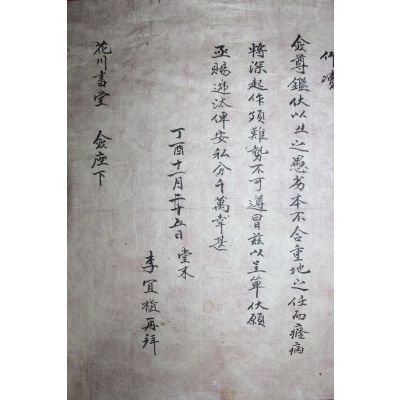 僉尊鑑伏以生之愚劣本不合重地之任而癃病
將深起作須難勢不可遵冒茲以呈單伏願
亟賜遞汰俾安私分千萬幸甚
丁酉十二月二十五日 堂末
李宜植再拜
花川書堂 僉座下